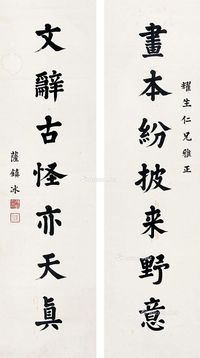 耀生仁兄雅正
畫本紛披来野意
文辭古怪亦天真
薩鎮冰